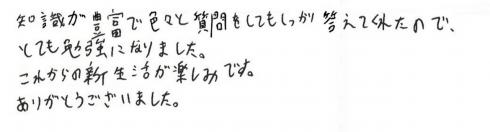 知識が豊富で色々と質問をしてもしっかり答えてくれたので、
とても勉強になりました。
これからの新生活が楽しみです。
ありがとうございました。